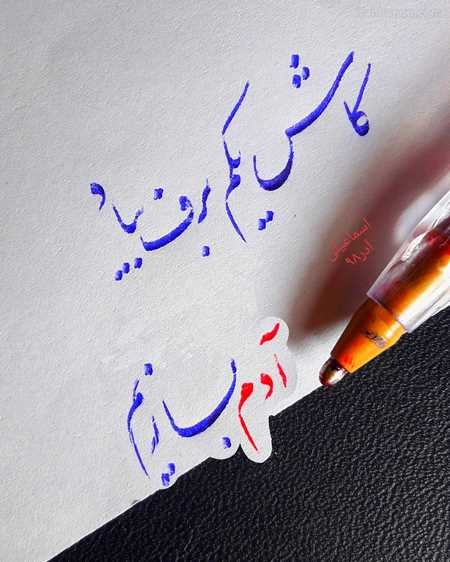 کاش یکم برف بیاد
آدم بسازیم
اسماعیلی
آذر ۹۸